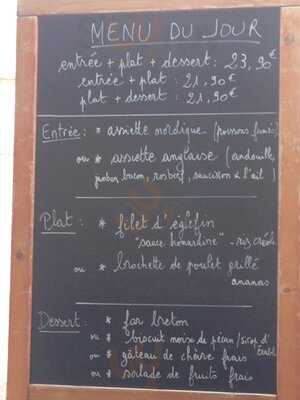 MENU DU JOUR
entrée + plat + dessert : 23,90€
entrée + plat : 21,90€
plat + dessert : 21,90€
Entrée : * assiette nordique (poissons fumés)
ou * assiette anglaise (andouille,
jambon, bacon, rosbeef, saucisson à l'ail)
Plat : * filet d'églefin
"sauce homardine" - riz créole
ou * brochette de poulet grillé
ananas
Dessert : * far breton
ou * biscuit noix de pécan / sirop d'érable
ou * gâteau de chèvre frais
ou * salade de fruits frais